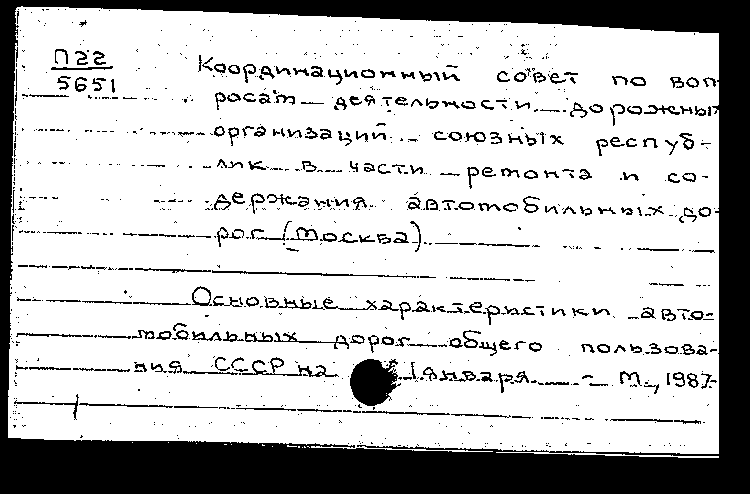 П22
5651
Координационный совет по воп-
росам деятельности дорожных
организаций союзных респуб-
лик в части ремонта и со-
держания автомобильных до-
рог (Москва)
Основные характеристики авто-
мобильных дорог общего пользова-
ния СССР на 1 января. - М., 1987-